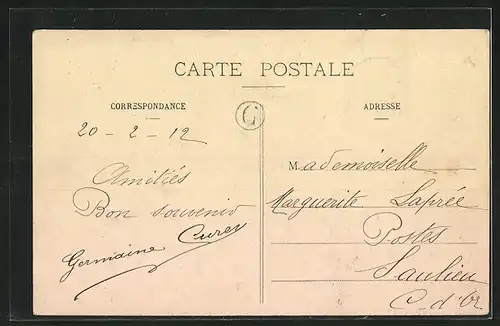 CARTE POSTALE
CORRESPONDANCE
20 - 2 - 12
Amitiés
Bon souvenir
Germaine Curey
G
ADRESSE
Mademoiselle
Marguerite Laprée
Postes
Saulieu
C-d'Or